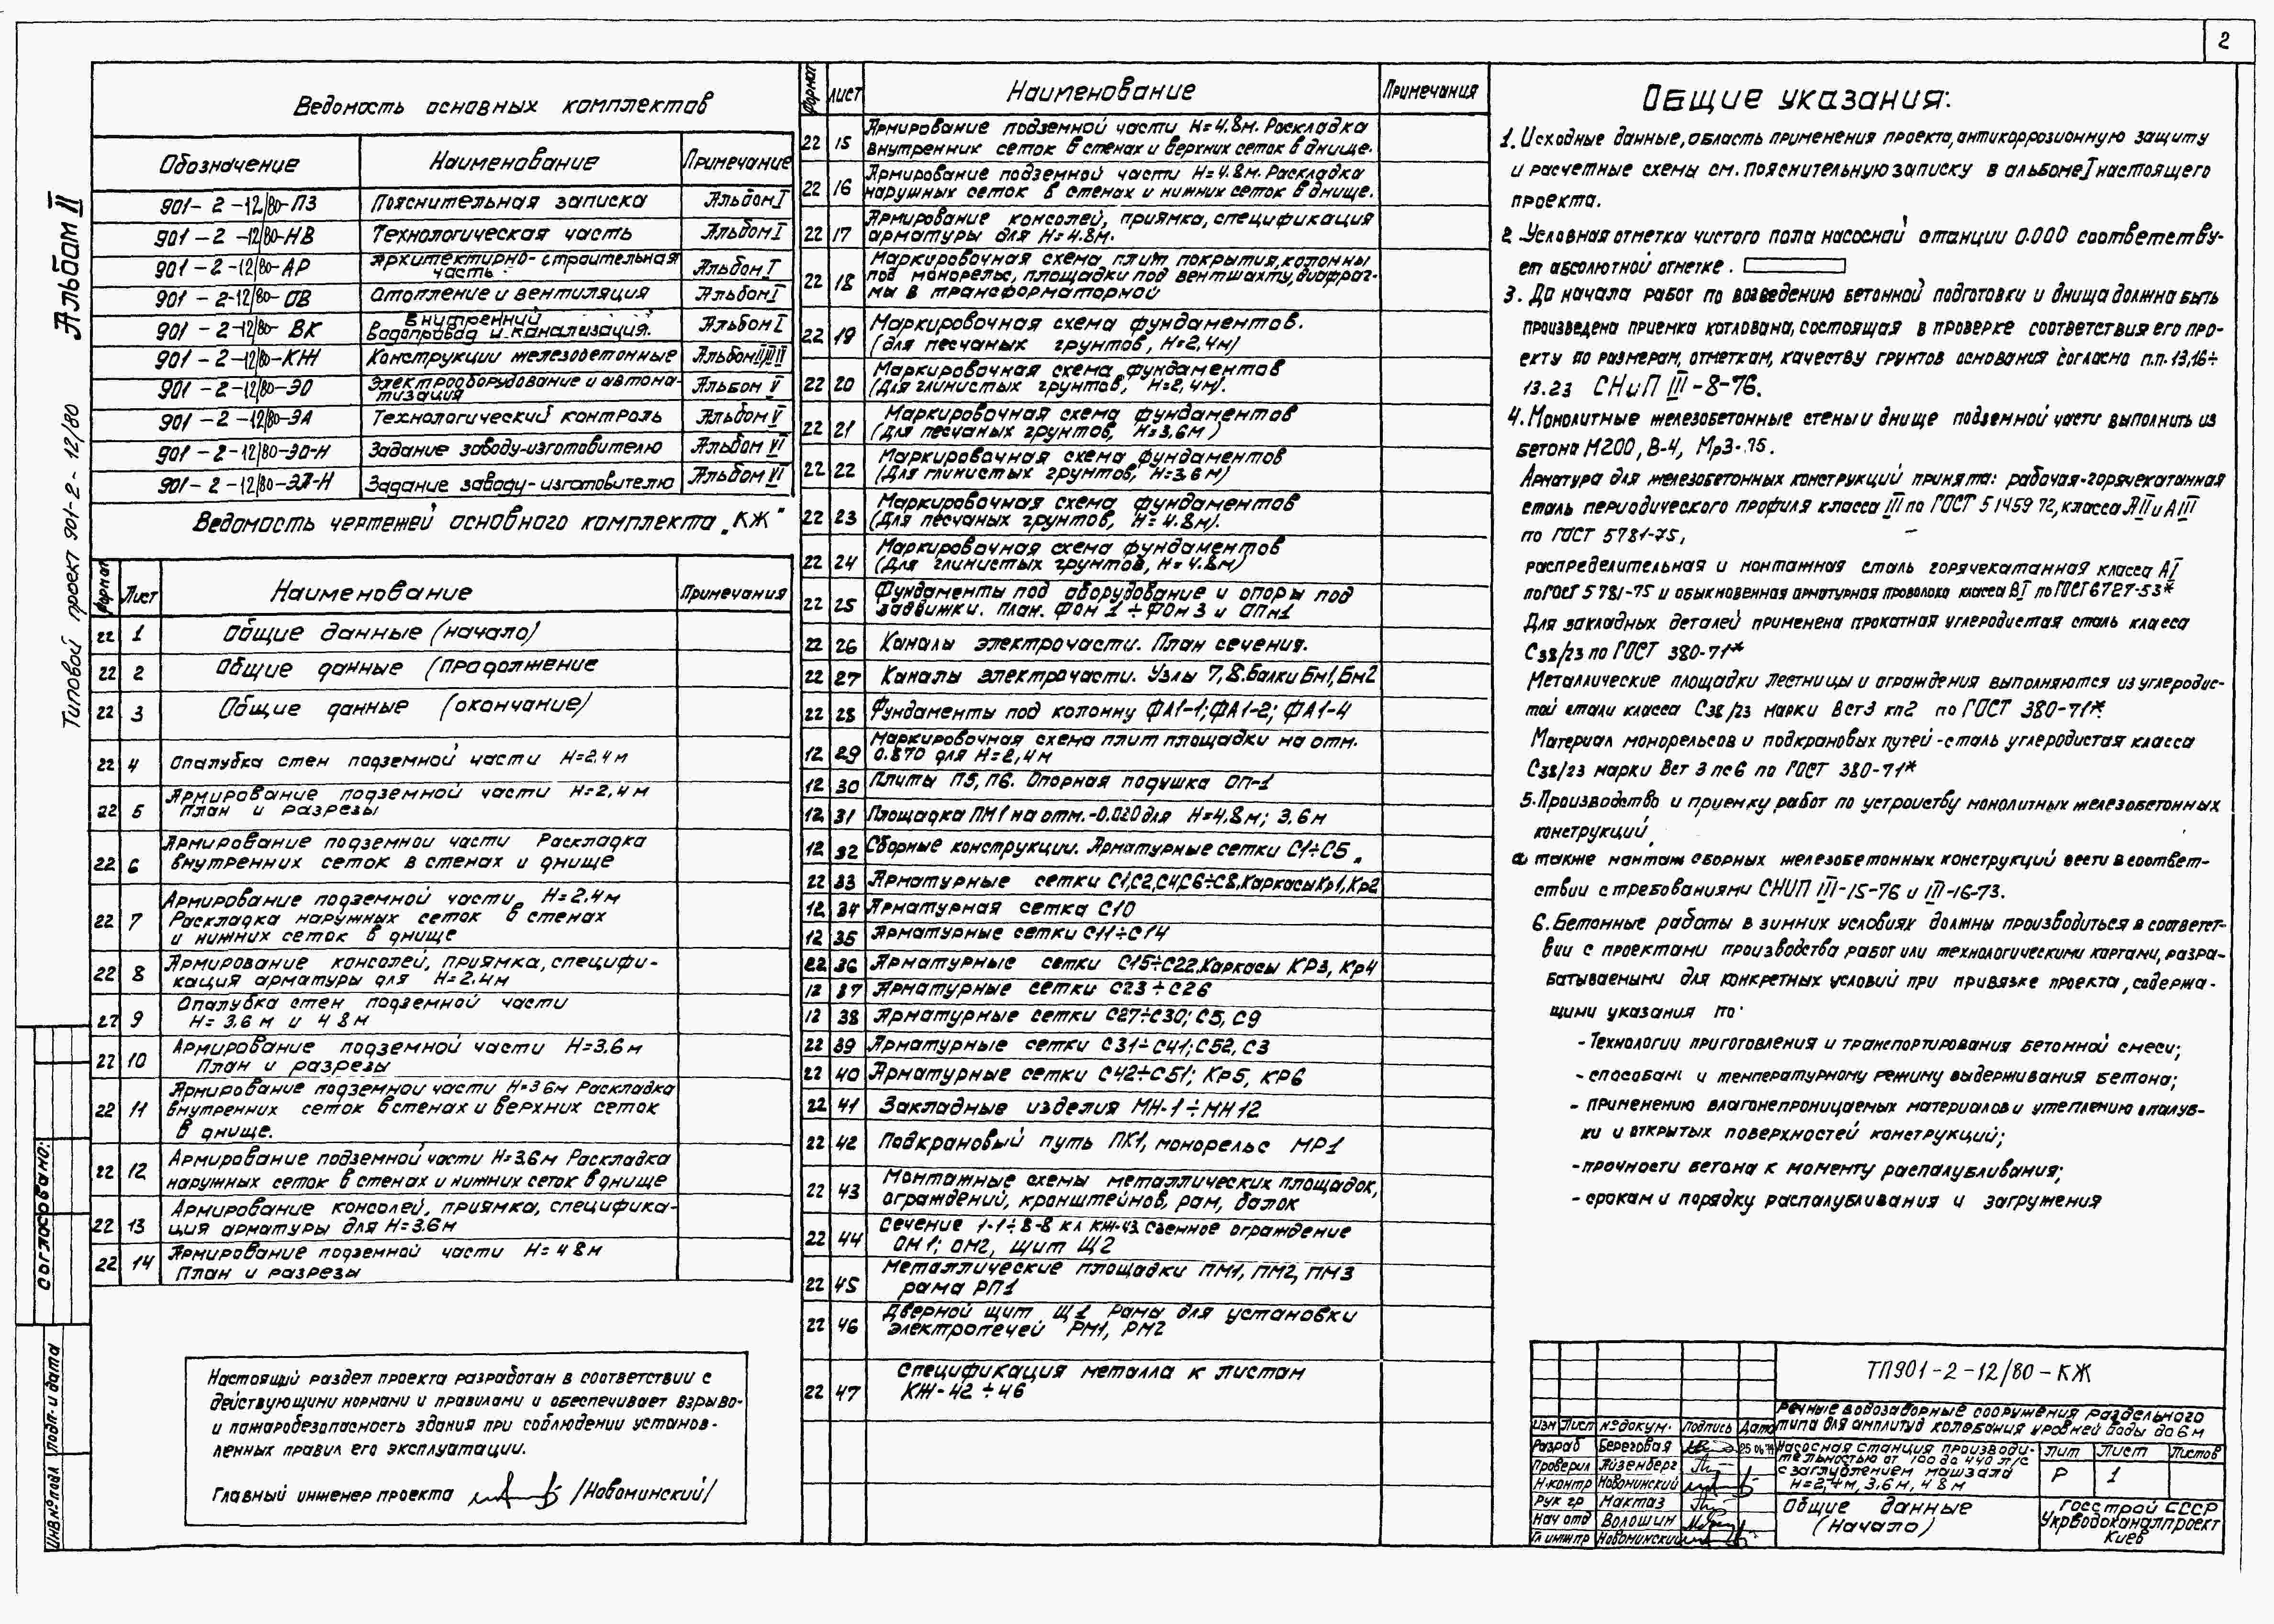 2
Альбом II
Типовой проект 901-2-12/80
Ведомость основных комплектов
Обозначение Наименование Примечание
901-2-12/80-ПЗ Пояснительная записка Альбом I
901-2-12/80-НВ Технологическая часть Альбом I
901-2-12/80-АР Архитектурно-строительная часть Альбом I
901-2-12/80-ОВ Отопление и вентиляция Альбом I
901-2-12/80-ВК Внутренний водопровод и канализация. Альбом I
901-2-12/80-КЖ Конструкции железобетонные Альбом
901-2-12/80-ЭО Электрооборудование и автоматизация Альбом V
901-2-12/80-ЭА Технологический контроль Альбом V
901-2-12/80-ЭО-Н Задание заводу-изготовителю Альбом VI
901-2-12/80-ЭЛ-Н Задание заводу-изготовителю Альбом VI
Ведомость чертежей основного комплекта „КЖ"
Формат Лист Наименование Примечания
22 1 Общие данные (начало)
22 2 Общие данные (продолжение
22 3 Общие данные (окончание)
22 4 Опалубка стен подземной части Н=2.4м
22 5 Армирование подземной части Н=2,4м
План и разрезы
22 6 Армирование подземной части Раскладка
внутренних сеток в стенах и днище
22 7 Армирование подземной части Н=2.4м
Раскладка наружных сеток в стенах
и нижних сеток в днище
22 8 Армирование консолей, приямка, специфи-
кация арматуры для Н=2.4м
22 9 Опалубка стен подземной части
Н=3.6м и 4 8м
22 10 Армирование подземной части Н=3,6м
План и разрезы
22 11 Армирование подземной части Н=3 6м Раскладка
внутренних сеток в стенах и верхних сеток
в днище.
22 12 Армирование подземной части Н=3.6м Раскладка
наружных сеток в стенах и нижних сеток в днище
22 13 Армирование консолей, приямка, специфика-
ция арматуры для Н=3.6м
22 14 Армирование подземной части Н=4 8м
План и разрезы
Настоящий раздел проекта разработан в соответствии с
действующими нормами и правилами и обеспечивает взрыво-
и пожаробезопасность здания при соблюдении установ-
ленных правил его эксплуатации.
Главный инженер проекта /Новоминский/
Согласовано:
Подп. и дата
Инв № подл
Формат Лист Наименование Примечания
22 15 Армирование подземной части Н=4.8м. Раскладка
внутренних сеток в стенах и верхних сеток в днище.
22 16 Армирование подземной части Н=4.8м. Раскладка
наружных сеток в стенах и нижних сеток в днище.
22 17 Армирование консолей, приямка, спецификация
арматуры для Н=4.8м.
22 18 Маркировочная схема плит покрытия, колонны
под монорельс, площадки под вентшахту, диафраг-
мы в трансформаторной
22 19 Маркировочная схема фундаментов.
(для песчаных грунтов, Н=2,4м)
22 20 Маркировочная схема фундаментов
(Для глинистых грунтов, Н=2,4м).
22 21 Маркировочная схема фундаментов
(Для песчаных грунтов, Н=3,6м)
22 22 Маркировочная схема фундаментов
(Для глинистых грунтов, Н=3,6м)
22 23 Маркировочная схема фундаментов
(Для песчаных грунтов, Н=4.8м).
22 24 Маркировочная схема фундаментов
(Для глинистых грунтов, Н=4.8м)
22 25 Фундаменты под оборудование и опоры под
задвижки. план. ФОм 1÷ФОм 3 и ОПм1
22 26 Каналы электрочасти. План сечения.
22 27 Каналы электрочасти. Узлы 7,8. Балки Бм1, Бм2
22 28 Фундаменты под колонну ФА1-1; ФА1-2; ФА1-4
12 29 Маркировочная схема плит площадки на отм.
0.870 для Н=2,4м
12 30 Плиты П5, П6. Опорная подушка ОП-1
12 31 Площадка ПМ1 на отм.-0.020 для Н=4,8м; 3.6м
12 32 Сборные конструкции. Арматурные сетки С1÷С5
22 33 Арматурные сетки С1,С2,С4,С6÷С8, Каркасы Кр1, Кр2
12 34 Арматурная сетка С10
12 35 Арматурные сетки С11÷С14
22 36 Арматурные сетки С15÷С22. Каркасы КР3, Кр4
12 37 Арматурные сетки С23÷С26
12 38 Арматурные сетки С27÷С30; С5, С9
22 39 Арматурные сетки С31÷С41; С52, С3
22 40 Арматурные сетки С42÷С51; Кр5, КР6
22 41 Закладные изделия МН-1÷МН12
22 42 Подкрановый путь ПК1, монорельс МР1
22 43 Монтажные схемы металлических площадок,
ограждений, кронштейнов, рам, балок
22 44 Сечение 1-1÷8-8 к л КЖ-43 Съемное ограждение
ОМ1; ОМ2, щит Щ2
22 45 Металлические площадки ПМ1, ПМ2, ПМ3
рама РП1
22 46 Дверной щит Щ1 Рамы для установки
электропечей РМ1, РМ2
22 47 Спецификация металла к листам
КЖ-42÷46
Общие указания:
1. Исходные данные, область применения проекта, антикоррозионную защиту
и расчетные схемы см. пояснительную записку в альбоме I настоящего
проекта.
2 Условная отметка чистого пола насосной станции 0.000 соответству-
ет абсолютной отметке.
3. До начала работ по возведению бетонной подготовки и днища должна быть
произведена приемка котлована, состоящая в проверке соответствия его про-
екту по размерам, отметкам, качеству грунтов основания согласно п.п. 13,16÷
13.23 СНиП III-8-76.
4. Монолитные железобетонные стены и днище подземной части выполнить из
бетона М200, В-4, Мрз-75.
Арматура для железобетонных конструкций принята: рабочая-горячекатанная
сталь периодического профиля класса III по ГОСТ 5 1459 72, класса АII и АIII
по ГОСТ 5781-75,
распределительная и монтажная сталь горячекатанная класса АI
по ГОСТ 5781-75 и обыкновенная арматурная проволока класса ВI по ГОСТ 6727-53*
Для закладных деталей применена прокатная углеродистая сталь класса
С38/23 по ГОСТ 380-71*
Металлические площадки лестницы и ограждения выполняются из углеродис-
той стали класса С38/23 марки Вст3 кп2 по ГОСТ 380-71*.
Материал монорельсов и подкрановых путей-сталь углеродистая класса
С38/23 марки Вст 3 пс6 по ГОСТ 380-71*
5. Производство и приемку работ по устройству монолитных железобетонных
конструкций,
а также монтаж сборных железобетонных конструкций вести в соответ-
ствии с требованиями СНИП III-15-76 и III-16-73.
6. Бетонные работы в зимних условиях должны производиться в соответст-
вии с проектами производства работ или технологическими картами, разра-
батываемыми для конкретных условий при привязке проекта, содержа-
щими указания по:
- технологии приготовления и транспортирования бетонной смеси;
- способам и температурному режиму выдерживания бетона;
- применению влагонепроницаемых материалов и утеплению опалуб-
ки и открытых поверхностей конструкций;
- прочности бетона к моменту распалубливания;
- срокам и порядку распалубливания и загружения
ТП901-2-12/80-КЖ
Речные водозаборные сооружения раздельного
типа для амплитуд колебания уровней воды до 6м
Изм Лист № докум. Подпись Дата
Разраб Береговая 25 06 79
Проверил Айзенберг
Н.контр Новоминский
Рук гр Мактаз
Нач отд Волошин
Гл инж пр Новоминский
Насосная станция производи-
тельностью от 100 до 440 л/с
с заглублением машзала
Н=2,4м, 3.6м, 4 8м
Лит Лист Листов
Р 1
Общие данные
(Начало)
Госстрой СССР
Укрводоканалпроект
Киев